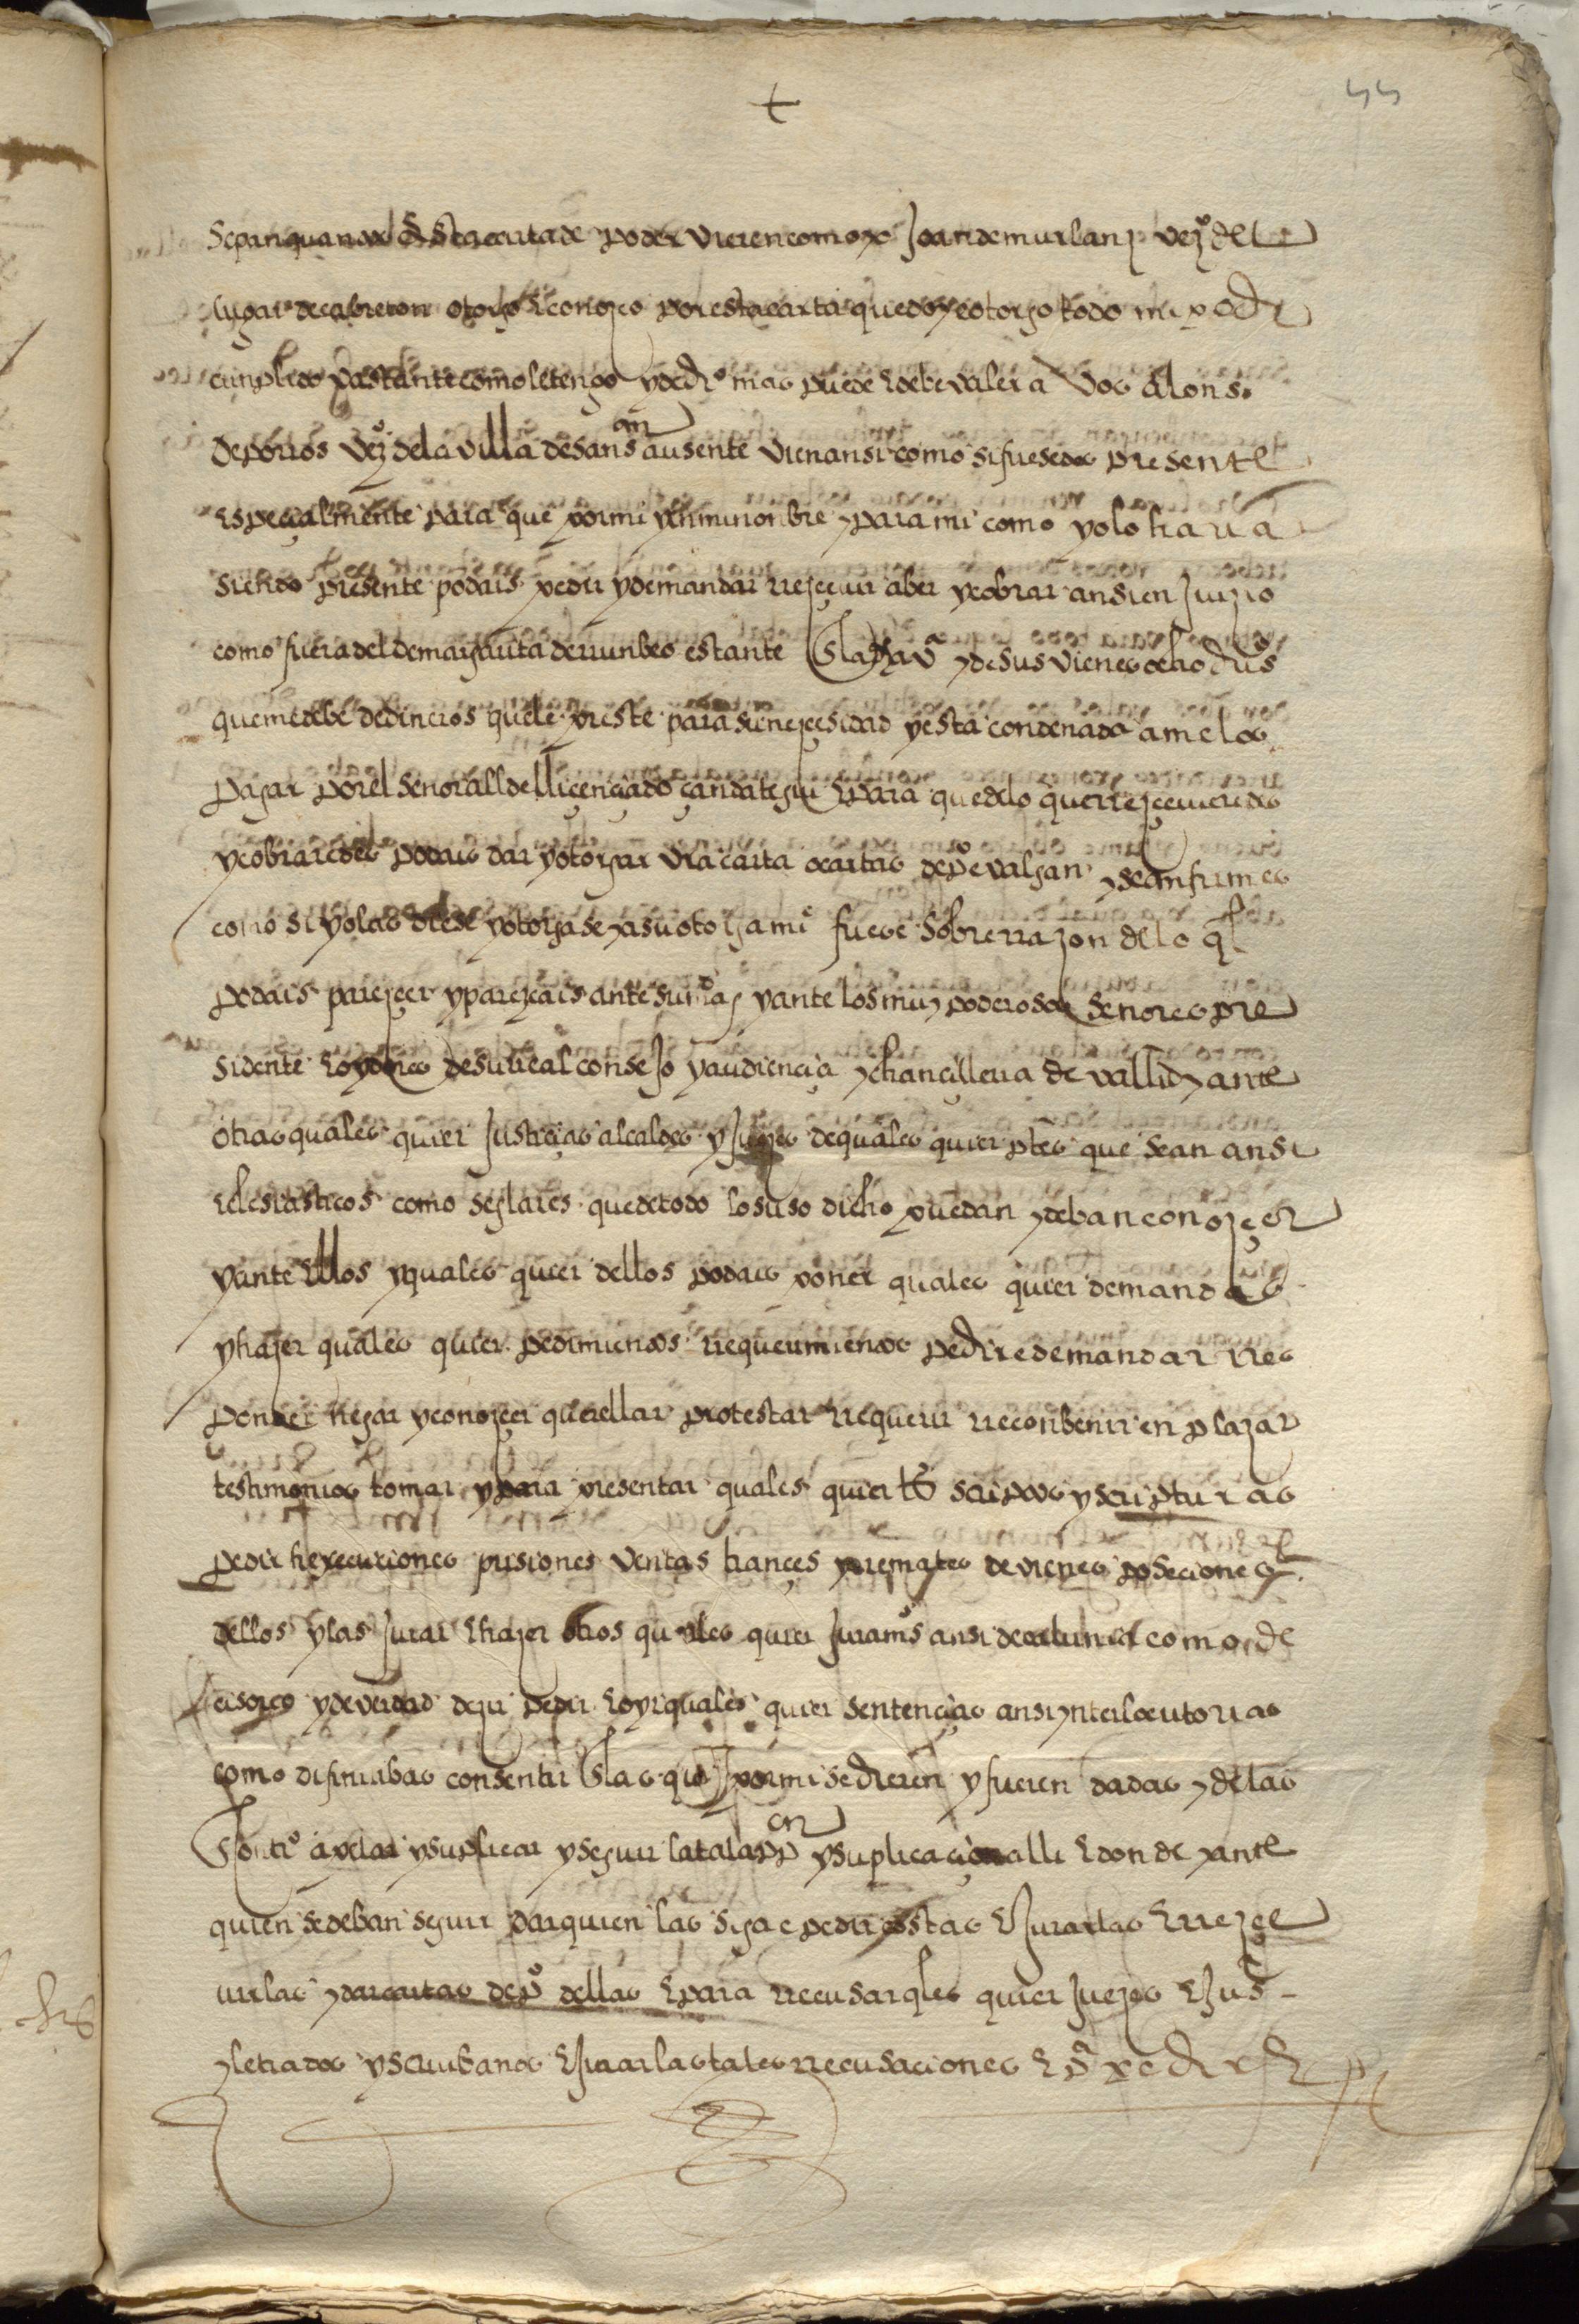 +
55
Sepan quantos esta carta de poder vieren como yo Joan de murlanz vezº del
lugar de cabreton otorgo e conozco por esta carta que doy e otorgo todo mi poder
cunplido bastante como le tengo y de drº mas puede e debe valer a vos Alonso
de porros vezº de la villa de sans ausente vien ansi como si fuesedes presente
especialmente para que por mi y en mi nonbre y para mi como yo lo haria
siendo presente podais pedir y demandar rrezeuir aber y cobrar ansi en juizio
como fuera del de margarita de estante y de sus vienes ocho dus
que me debe de dineros que le preste para su nezesidad y esta condenada a me los
pagar por el señor allde lliçençiado çandategui e para que de lo que rrezeuieredes
y cobraredes podais dar y otorgar vra carta o cartas de pº e valgan y sean firmes
como si yo las diese y otorgase y a su otorgamiº fuese sobre rrazon de lo ql
podais parezer y parezcais ante su mag y ante los muy poderosos señores pre
sidente e oydores de su rreal consejo y audiencia y chancilleria de vallid y ante
otras quales quier justicias alcaldes y juezes de quales quier ptes que sean ansi
eclesiasticos como seglares que de todo lo suso dicho puedan y deban conozçer
y ante ellos y quales quier dellos podais poner quales quier demandas
y hazer quales quier pedimientos rrequerimientos pedir e demandar rres
ponder negar y conozer querellar protestar rrequerir rreconbenir enplazar
testimonios tomar y para presentar quales quier tºs scriptos y scripturas
pedir hexecuciones prisiones ventas trançes y rremates de vienes poseciones
dellos y las jurar e hazer otros quales quier juramºs ansi de calunia como de
cisorio y de verdad dezir pedir e oyr quales quier sentencias ansi ynterlocutorias
como difinitibas consentir las que por mi se dieren y fueren dadas y de las
contrº apelar y suplicar y seguir la tal app on y suplicacion alli e donde y ante
quien se deban seguir dar quien las siga e pedir costas e jurarlas e rrezçe
uirlas y dar cartas de pº dellas e para rrecusar qles quier juezes e jus
y letrados y scriuanos e jurar las tales rrecusaciones e pª pedir